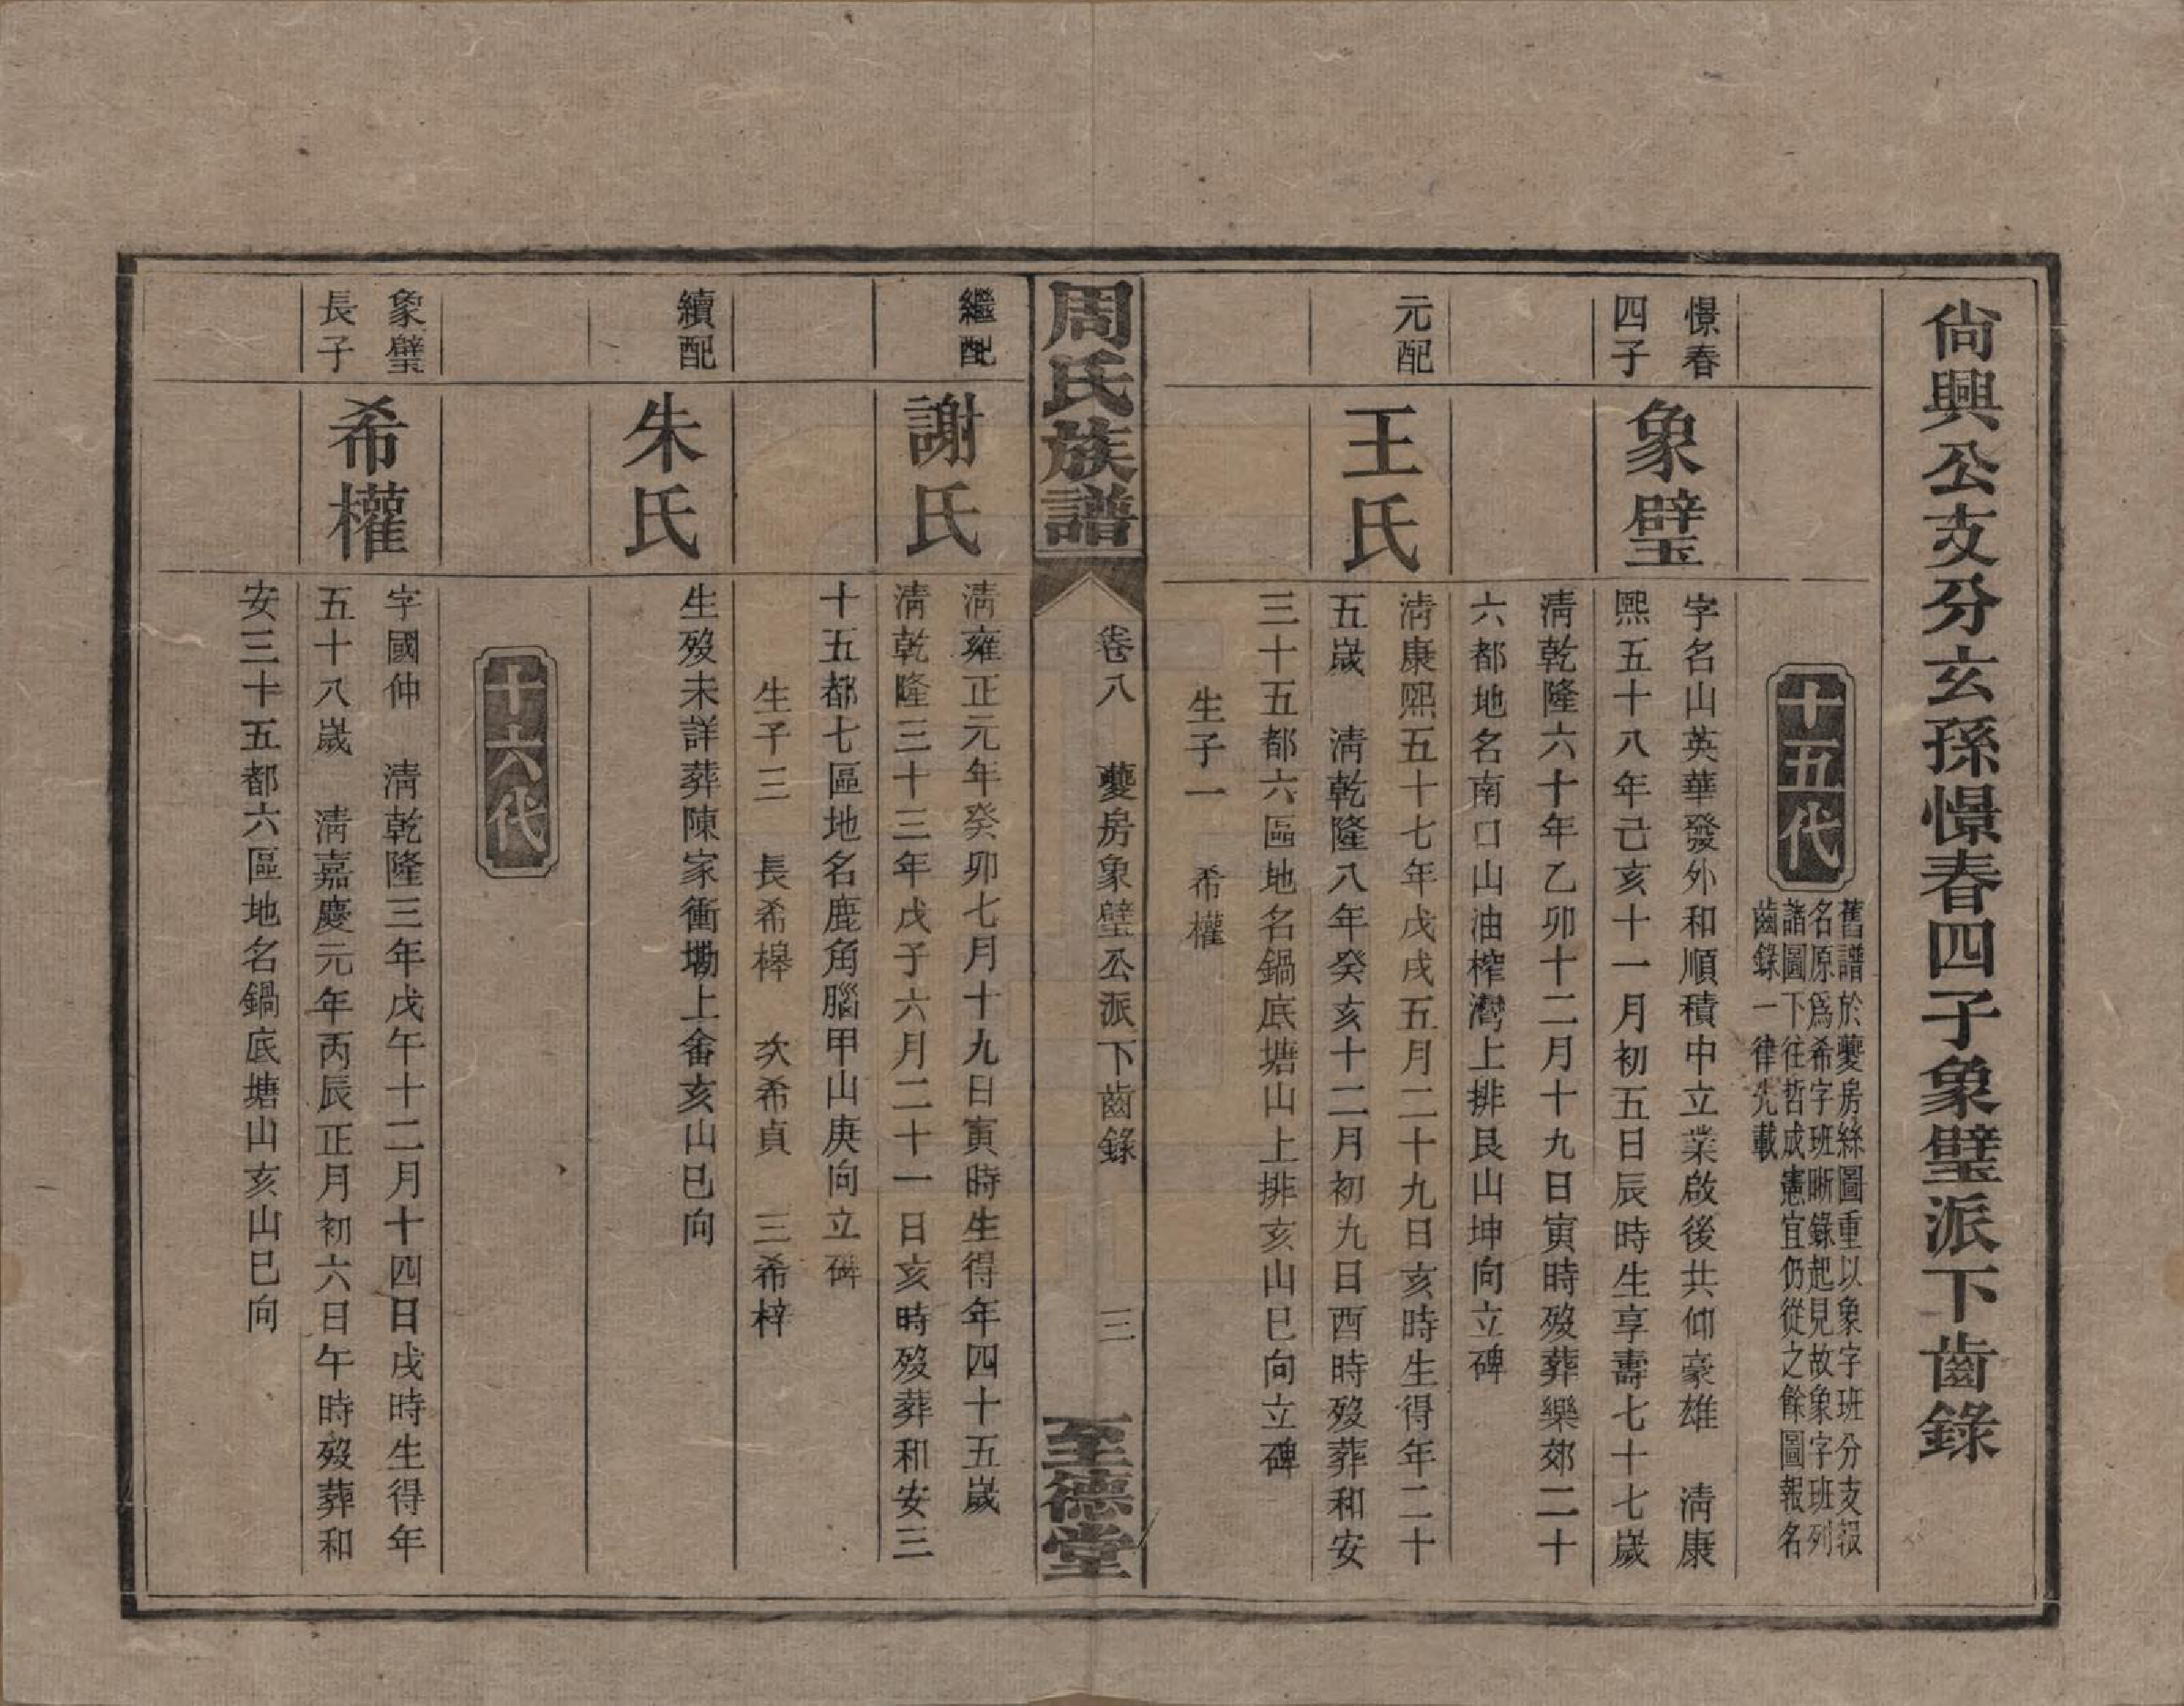 尙興公支分玄孫憬春四子象璧派下齒錄
十五代
舊譜於夔房絲圖重以象字班分支報
名原爲希字班晰錄起見故象字班列
諸圖下往哲成憲宜仍從之餘圖報名
齒錄一律先載
憬春
四子
象璧
字名山英華發外和順積中立業啟後共仰豪雄　淸康
熙五十八年己亥十一月初五日辰時生享壽七十七歲
淸乾隆六十年乙卯十二月十九日寅時歿葬樂郊二十
六都地名南口山油榨灣上排艮山坤向立碑
元配
王氏
淸康熙五十七年戊戌五月二十九日亥時生得年二十
五歲　淸乾隆八年癸亥十二月初九日酉時歿葬和安
三十五都六區地名鍋底塘山上排亥山巳向立碑
生子一　希權
周氏族譜
卷八　夔房象璧公派下齒錄　三
至德堂
繼配
謝氏
淸雍正元年癸卯七月十九日寅時生得年四十五歲
淸乾隆三十三年戊子六月二十一日亥時歿葬和安三
十五都七區地名鹿角腦甲山庚向立碑
生子三　長希槔　次希貞　三希梓
續配
朱氏
生歿未詳葬陳家衝塝上畲亥山巳向
十六代
象璧
長子
希權
字國仲　淸乾隆三年戊午十二月十四日戌時生得年
五十八歲　淸嘉慶元年丙辰正月初六日午時歿葬和
安三十五都六區地名鍋底塘山亥山巳向